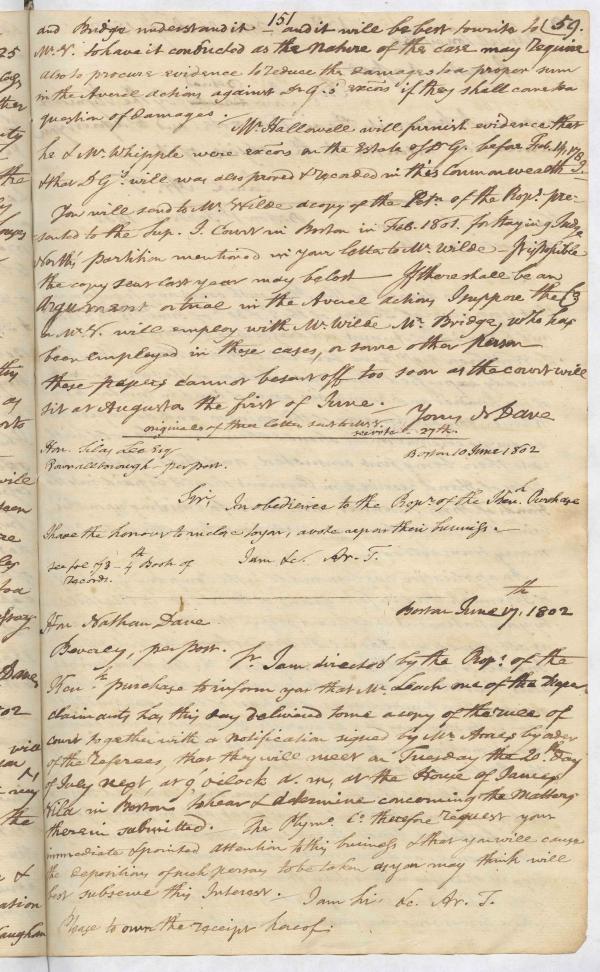 151
59.
and Bridge understand it — and it will be best to write to
Mr. V. to have it conducted as the nature of the case may require
also to procure evidence to reduce the damages to a proper sum
in the Averel actions against Dr. G.s excors if they shall come to a
question of damages.
Mr. Hallowell will furnish evidence that
he & Mr. Whipple were excors on the Estate of Dr G. before Feb. 14, 178
& that D G's. will was also proved & recorded in this Commonwealth
You will send to Mr. Wilde a copy of the Petn. of the Propr. pre-
sented to the Sup. J. Court in Boston in Feb. 1801. for staying Judge
North's partition mentioned in your letter to Mr. Wilde — if possible
the copy sent last year may be lost — If there shall be an
Argument or trial in the Averel actions I suppose the Co
or Mr. V. will employ with Mr. Wilde Mr. Bridge, who has
been employed in these cases, or some other person —
these papers cannot be sent off too soon as the court will
sit at Augusta the first of June. —
Yours N Dane
originals of these letters sent to Mr. V.
27th.
Hon. Silas Lee Esq
Boston 10 June 1802
Pownallborough — per post.
Sir, In obedience to the Propr. of the Kenk. Purchase
I have the honour to inclose to you, a vote upon their business. —
see foe 73 — 4th Book of
I am &c. Ar. T.
records.
Boston June 17th, 1802
Hon Nathan Dane
Beverly, per post.
Sr. I am directed by the Propr. of the
Kenk. purchase to inform you that Mr. Leach one of the
claimants has this day delivered to me a copy of the rule of
court together with a notification signed by Mr. Ames by order
of the referees, that they will meet on Tuesday the 20th. Day
of July next, at 9 o'clock a. m, at the House of James
Vila in Boston, to hear & determine concerning the Matters
therein submitted. The Plymo. Co. therefore request your
immediate & pointed attention to this business & that you will cause
the depositions of such persons to be taken as you may think will
best subserve this Interest. I am Sir, &c. Ar. T.
Please to own the receipt hereof.